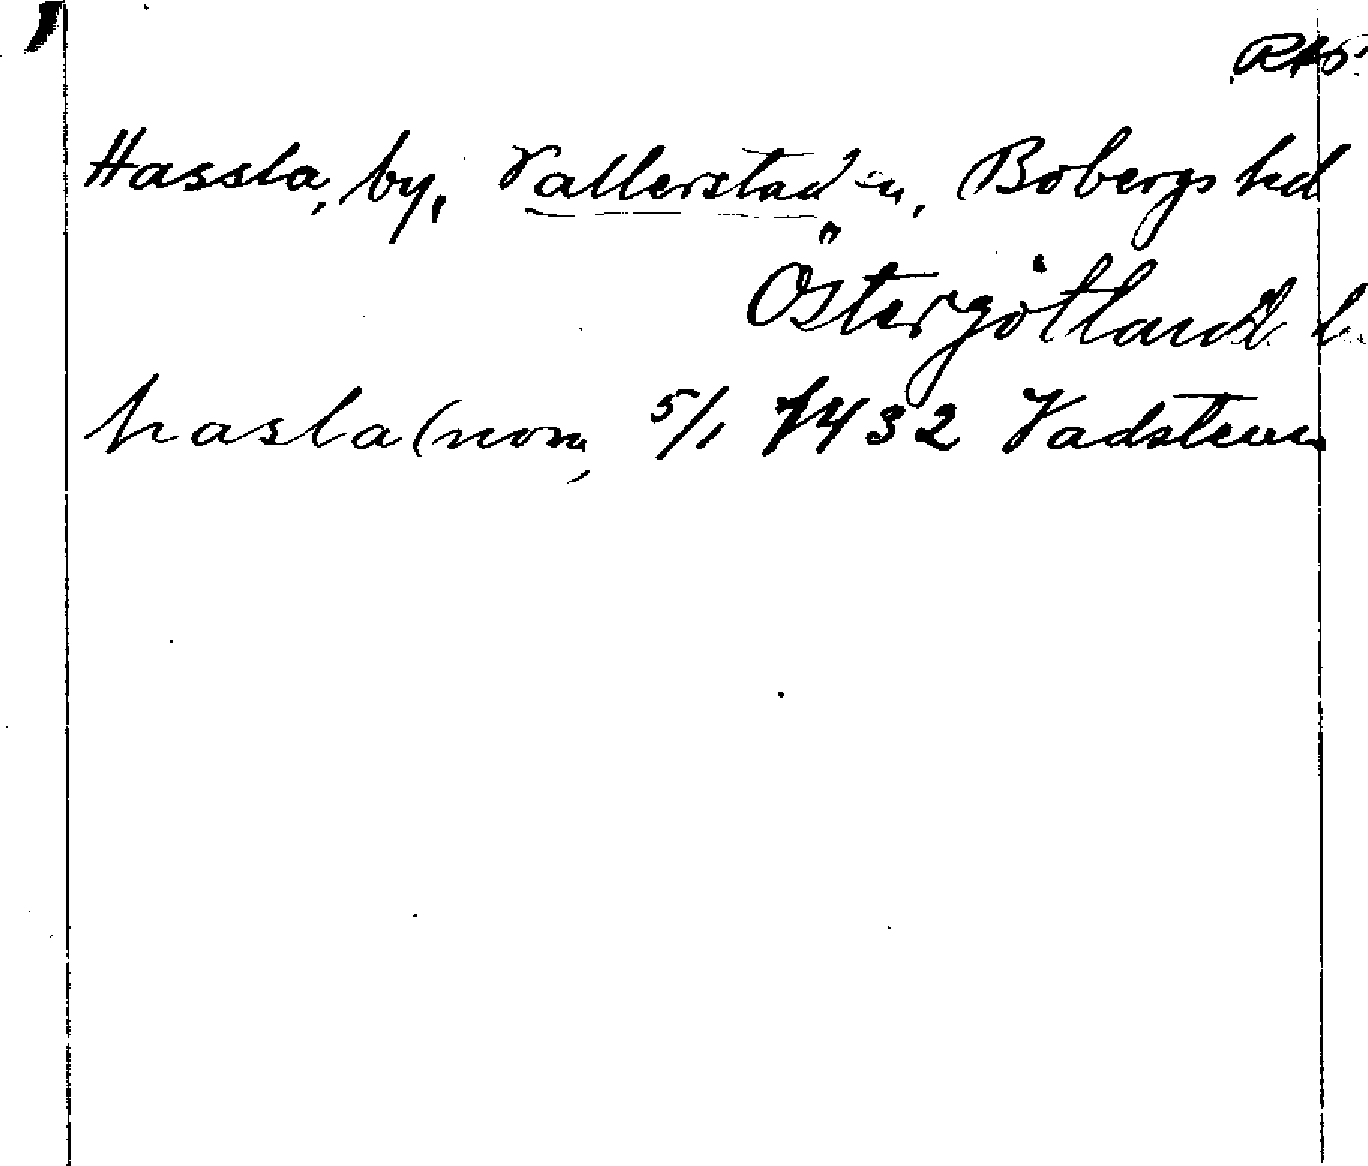 RAP.
Hassla, by, Vallerstad sn, Bobergs hd
Östergötlands l.
hasla (nom, 5/1 1432 Vadstena